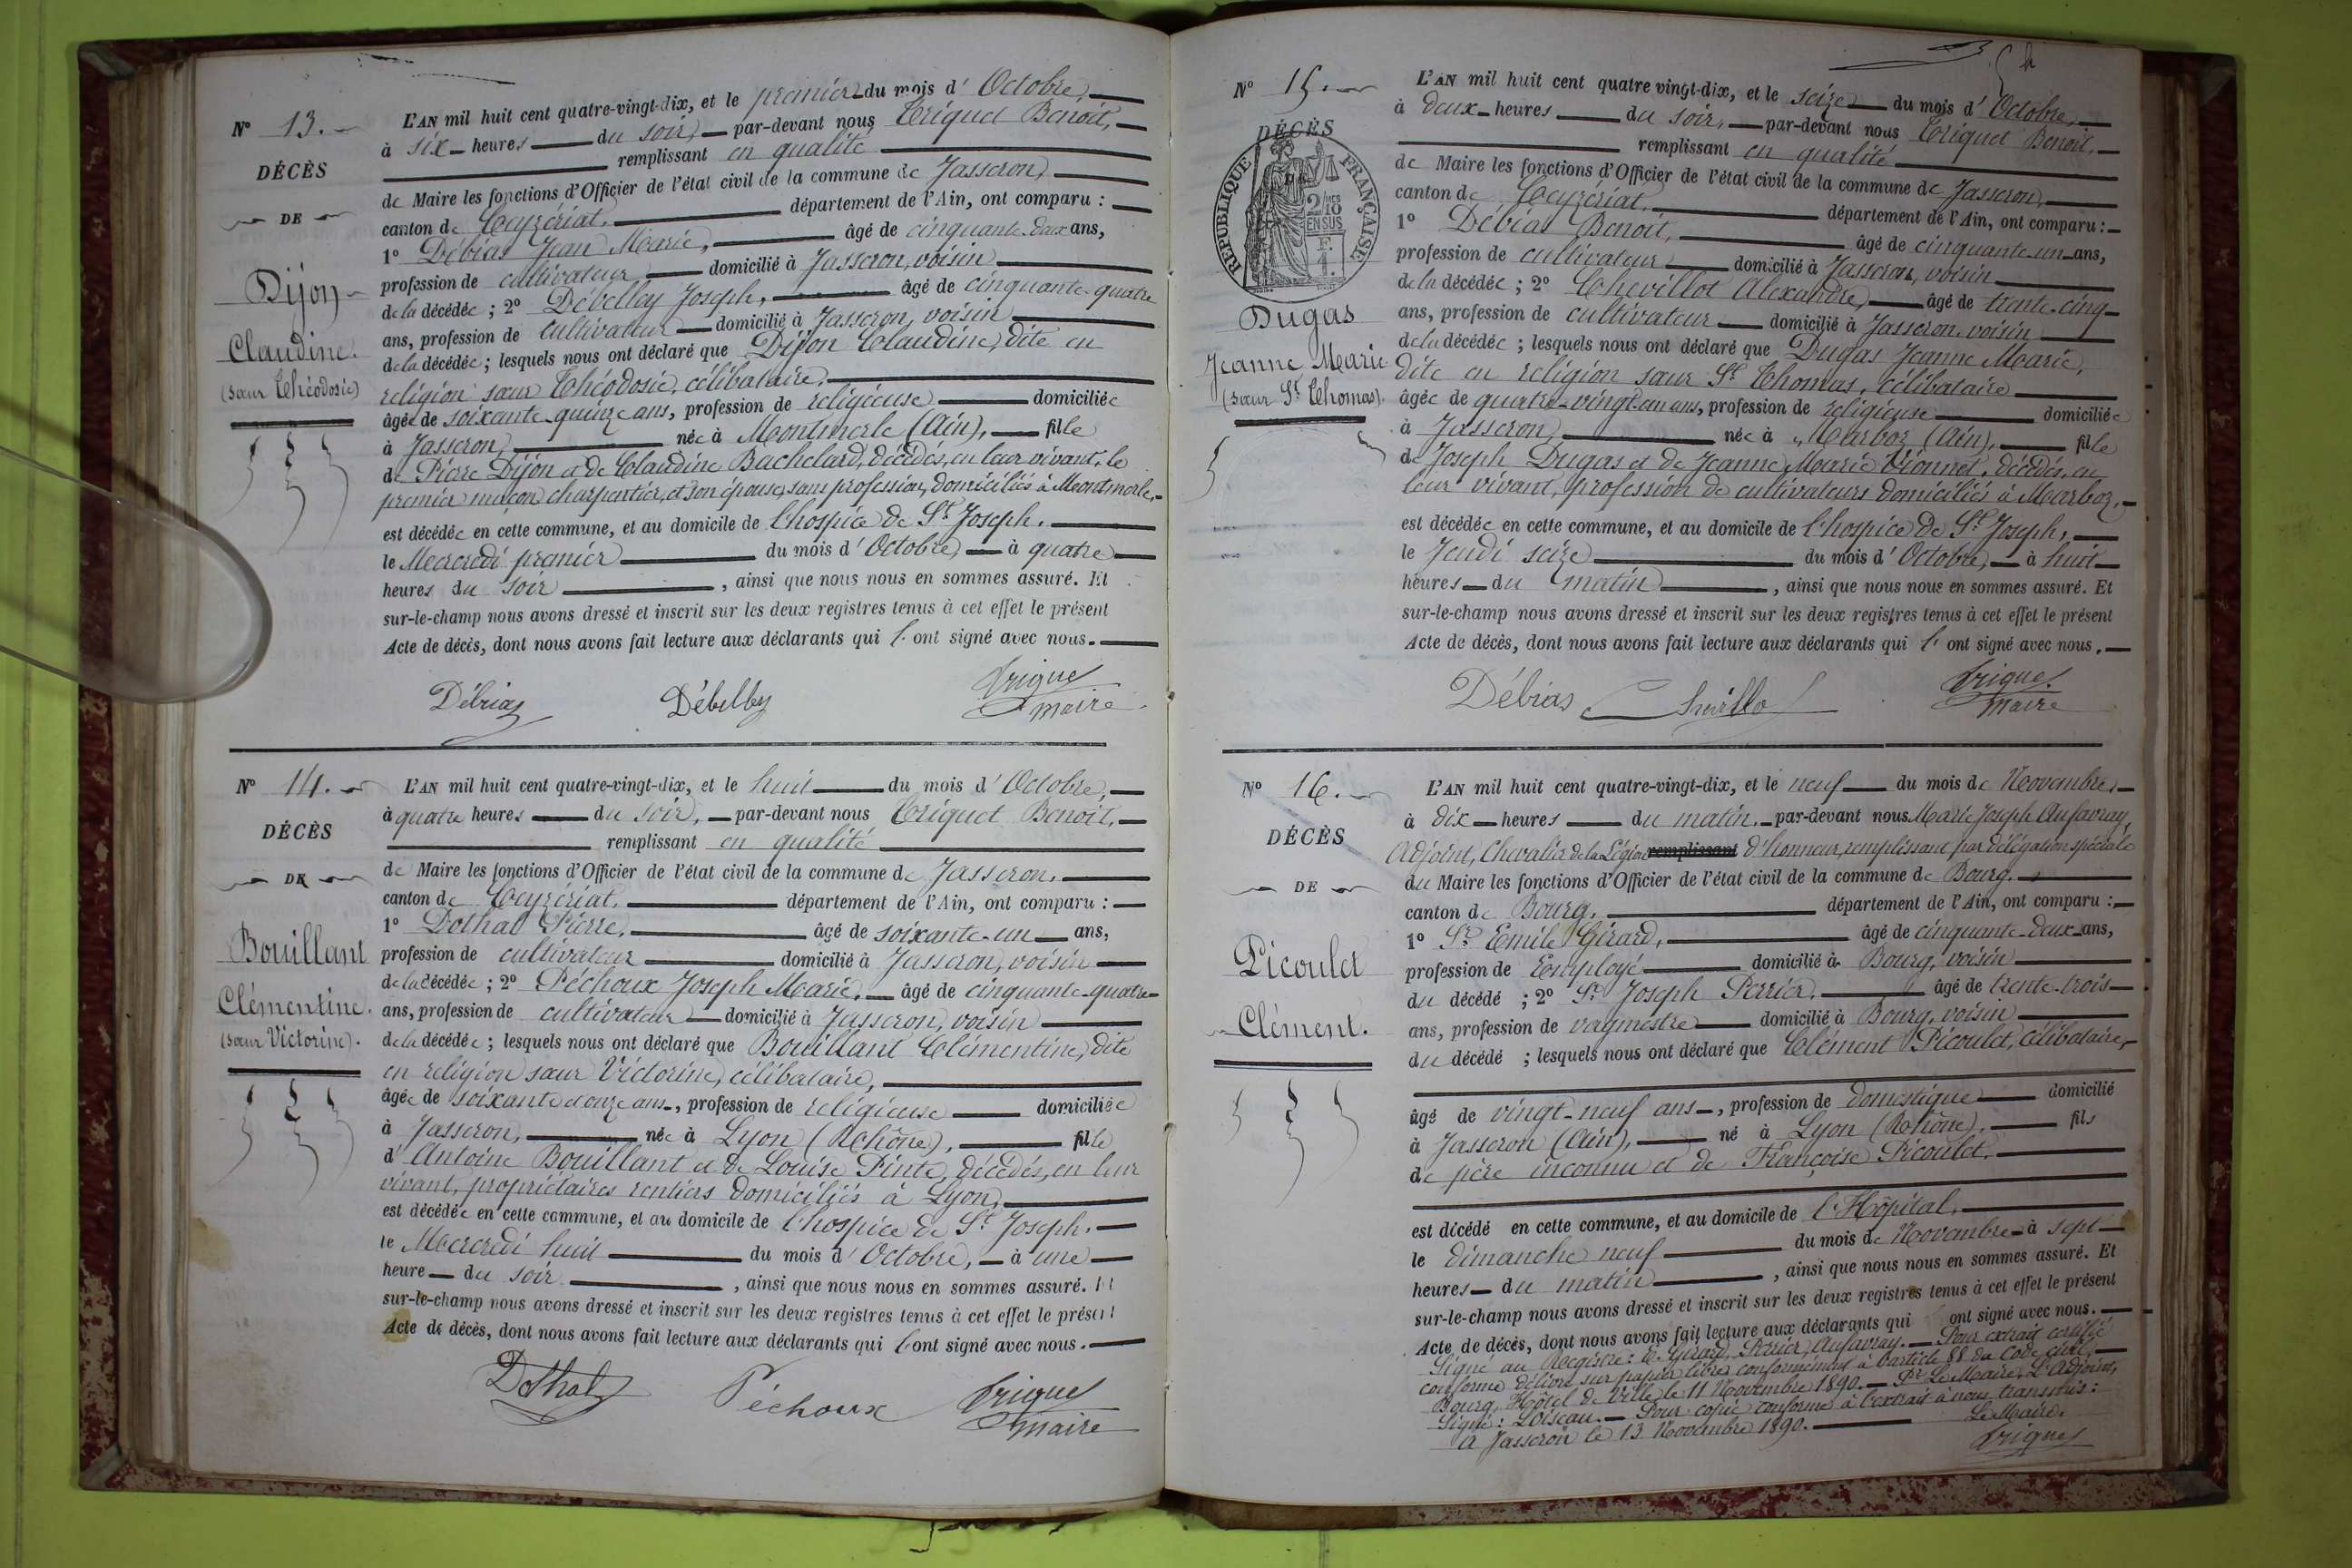 N° 13.
DÉCÈS
DE
Dijon
Claudine.
(sœur Théodosie)
L'AN mil huit cent quatre-vingt-dix, et le premier du mois d'Octobre,
à six heures du soir, par-devant nous Triquet Benoit,
remplissant en qualité
de Maire les fonctions d'Officier de l'état civil de la commune de Jasseron,
canton de Ceyzériat, département de l'Ain, ont comparu :
1° Débias Jean Marie, âgé de cinquante-deux ans,
profession de cultivateur domicilié à Jasseron, voisin
de la décédée ; 2° Débelley Joseph, âgé de cinquante-quatre
ans, profession de cultivateur domicilié à Jasseron, voisin
de la décédée ; lesquels nous ont déclaré que Dijon Claudine, dite en
religion sœur Théodosie, célibataire,
âgée de soixante-quinze ans, profession de religieuse domiciliée
à Jasseron, née à Montmerle (Ain), fille
de Pierre Dijon et de Claudine Bachelard, décédés, en leur vivant, le
premier maçon charpentier, et son épouse, sans profession, domiciliés à Montmerle,
est décédée en cette commune, et au domicile de l'hospice de St Joseph,
le Mercredi premier du mois d'Octobre, à quatre
heures du soir, ainsi que nous nous en sommes assuré. Et
sur-le-champ nous avons dressé et inscrit sur les deux registres tenus à cet effet le présent
Acte de décès, dont nous avons fait lecture aux déclarants qui l'ont signé avec nous.
Débias Débelley Triquet
maire
N° 14.
DÉCÈS
DE
Bouillant
Clémentine.
(sœur Victorine).
L'AN mil huit cent quatre-vingt-dix, et le huit du mois d'Octobre,
à quatre heures du soir, par-devant nous Triquet Benoit,
remplissant en qualité
de Maire les fonctions d'Officier de l'état civil de la commune de Jasseron,
canton de Ceyzériat, département de l'Ain, ont comparu :
1° Dothal Pierre, âgé de soixante-un ans,
profession de cultivateur domicilié à Jasseron, voisin
de la décédée ; 2° Péchoux Joseph Marie, âgé de cinquante-quatre
ans, profession de cultivateur domicilié à Jasseron, voisin
de la décédée ; lesquels nous ont déclaré que Bouillant Clémentine, dite
en religion sœur Victorine, célibataire,
âgée de soixante et onze ans, profession de religieuse domiciliée
à Jasseron, née à Lyon (Rhône), fille
d'Antoine Bouillant et de Louise Pinte, décédés, en leur
vivant, propriétaires rentiers domiciliés à Lyon,
est décédée en cette commune, et au domicile de l'hospice de St Joseph,
le Mercredi huit du mois d'Octobre, à une
heure du soir, ainsi que nous nous en sommes assuré. Et
sur-le-champ nous avons dressé et inscrit sur les deux registres tenus à cet effet le présent
Acte de décès, dont nous avons fait lecture aux déclarants qui l'ont signé avec nous.
Dothal Péchoux Triquet
maire
N° 15.
DÉCÈS
RÉPUBLIQUE FRANÇAISE
2 10MES
EN SUS
F. 4.
Dugas
Jeanne Marie
(sœur St Thomas).
L'AN mil huit cent quatre vingt-dix, et le seize du mois d'Octobre,
à deux heures du soir, par-devant nous Triquet Benoit,
remplissant en qualité
de Maire les fonctions d'Officier de l'état civil de la commune de Jasseron,
canton de Ceyzériat, département de l'Ain, ont comparu :
1° Débias Benoit, âgé de cinquante-un ans,
profession de cultivateur domicilié à Jasseron, voisin
de la décédée ; 2° Chevillot Alexandre, âgé de trente-cinq
ans, profession de cultivateur domicilié à Jasseron, voisin
de la décédée ; lesquels nous ont déclaré que Dugas Jeanne Marie,
dite en religion sœur St Thomas, célibataire
âgée de quatre-vingt-un ans, profession de religieuse domiciliée
à Jasseron, née à Marboz (Ain), fille
de Joseph Dugas et de Jeanne Marie Vionnet, décédés, en
leur vivant, profession de cultivateurs domiciliés à Marboz,
est décédée en cette commune, et au domicile de l'hospice de St Joseph,
le Jeudi seize du mois d'Octobre, à huit
heures du matin, ainsi que nous nous en sommes assuré. Et
sur-le-champ nous avons dressé et inscrit sur les deux registres tenus à cet effet le présent
Acte de décès, dont nous avons fait lecture aux déclarants qui l'ont signé avec nous.
Débias Chevillot Triquet
maire
N° 16.
DÉCÈS
DE
Picoulet
Clément.
L'AN mil huit cent quatre-vingt-dix, et le neuf du mois de Novembre,
à dix heures du matin, par-devant nous Marie Joseph Aufavray,
Adjoint, Chevalier de la Légion remplissant d'honneur, remplissant par délégation spéciale
du Maire les fonctions d'Officier de l'état civil de la commune de Bourg,
canton de Bourg, département de l'Ain, ont comparu :
1° Sr Emile Girard, âgé de cinquante-deux ans,
profession de Employé domicilié à Bourg, voisin
du décédé ; 2° Sr Joseph Perrier, âgé de trente-trois
ans, profession de vagmestre domicilié à Bourg, voisin
du décédé ; lesquels nous ont déclaré que Clément Picoulet, célibataire,
âgé de vingt-neuf ans, profession de domestique domicilié
à Jasseron (Ain), né à Lyon (Rhône), fils
de père inconnu et de Françoise Picoulet,
est décédé en cette commune, et au domicile de l'Hôpital,
le dimanche neuf du mois de Novembre à sept
heures du matin, ainsi que nous nous en sommes assuré. Et
sur-le-champ nous avons dressé et inscrit sur les deux registres tenus à cet effet le présent
Acte de décès, dont nous avons fait lecture aux déclarants qui ont signé avec nous.
Signé au Registre : E. Girard, Perrier, Aufavray. Pour extrait certifié
conforme délivré sur papier libre conformément à l'article 88 du Code civil,
Bourg, Hôtel de Ville, le 11 Novembre 1890. Pr Le Maire, L'Adjoint,
Signé : Loiseau. Pour copie conforme à l'extrait à nous transmis :
A Jasseron le 13 Novembre 1890. Le Maire,
Triquet